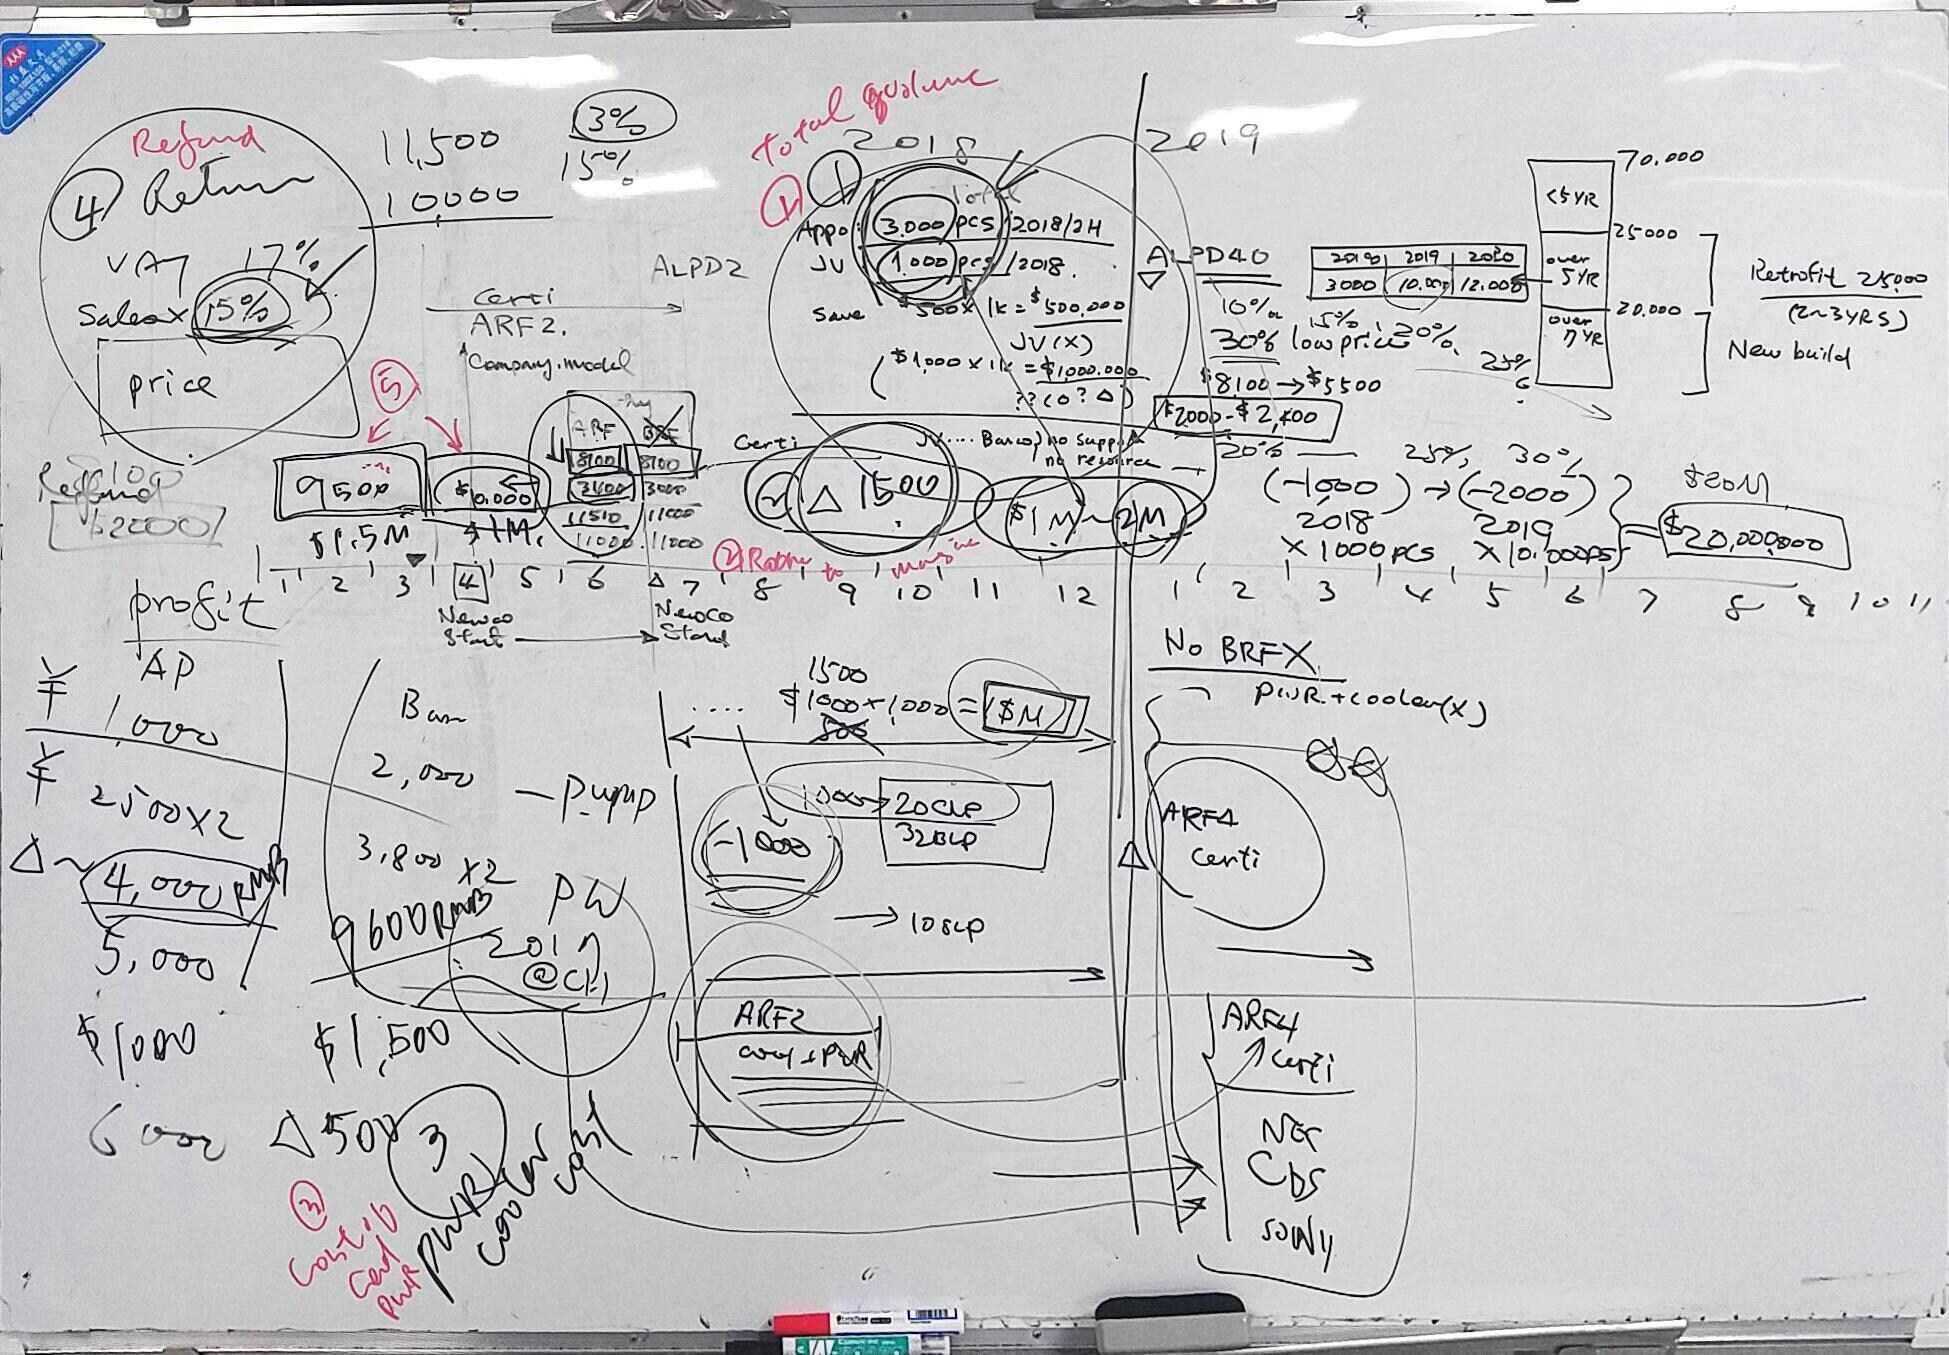 Refund
④ Return
VAT 17%
Salesx 15%
price
11,500
10,000
13%
15%
Total
2018
2019
①
①
Total
Appo: 3.000 pcs/2018/2H
JV 1.000 pcs/2018.
Save $500 x 1k = $500.000
JV (X)
($1,000 x 1k = $1,000.000
??(0? △)
ALPD2
Certi
ARF2.
Company.model
ALPD40
10%
15% 20%
30% low price
$8100→$5500
$2000-$2,400
2018 2019 2020
3000 10.000 12.000
70.000
<5YR
25000
over 5YR
20.000
over 7YR
Retrofit 25.000
(2~3YRS)
New build
25%
⑤
ARF BRF
8100 8100
3400 3000
11510 11000
11000 11000
Certi
JV .... Barco, no support
no resource
Refund
$2000
9500
$10.000
$1.5M
$1M.
△ 1500
$1M ~ 2M
②
to
20% 25% 30%
(-1000) → (-2000)
2018 2019
x 1000 pcs x 10.000 pcs
$20M
= $20,000,000
1 2 3 4 5 6 7 8 9 10 11 12 1 2 3 4 5 6 7 8 9 10 11
Newco
Start
NewCo
Start
profit
AP
¥ 1,000
¥ 2500x2
△~ 4,000 RMB
5,000
$1000
6000
2,000
3,800 x2
9600 RMB
$1,500
△500
- Pump
PW
2017
3
PWR
cooler
cost
③
PWR
1500
....
$1000 x 1,000 = ($M)
-1000
20CLP
32BLP
→ 10SLP
ARF2
No BRFX
PWR.+cooler(X)
ARF4
Certi
ARF4
Certi
NEC
CDS
SONY